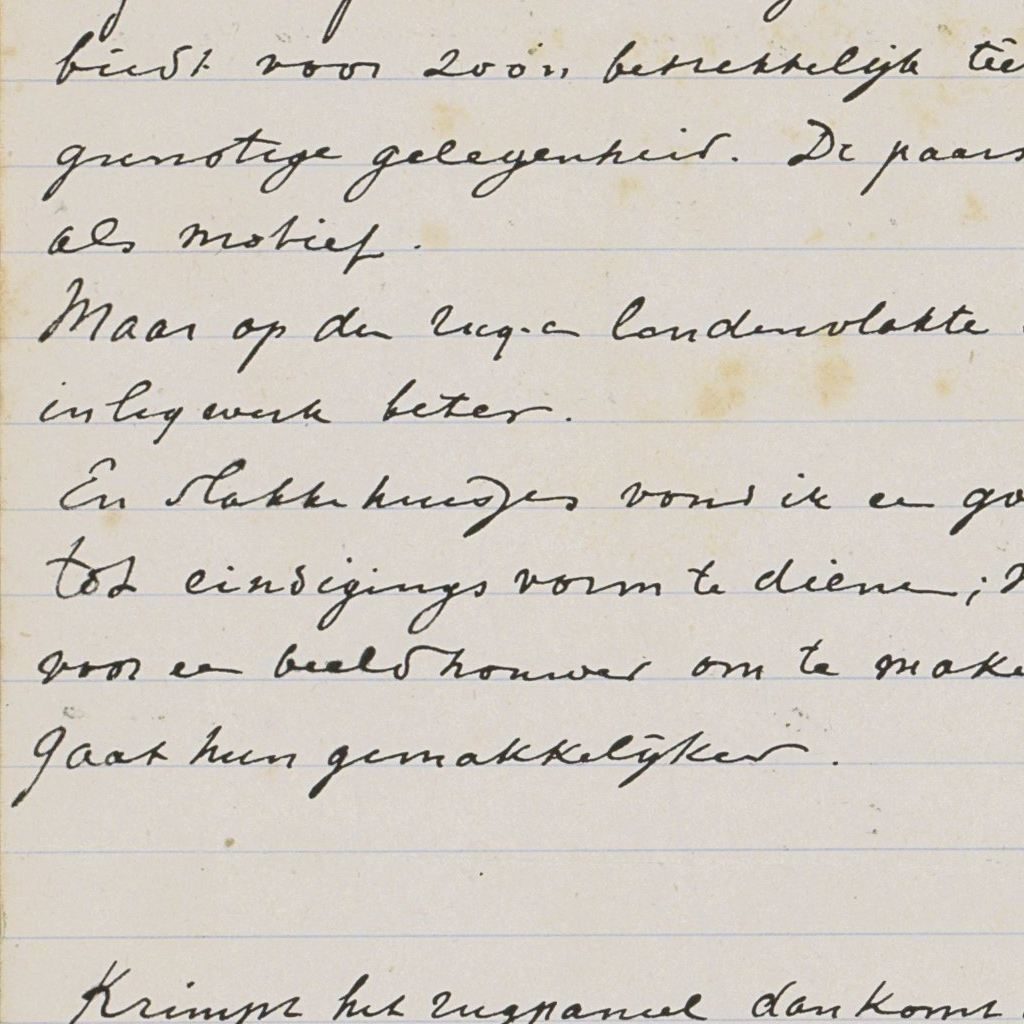 biedt voor zoo'n betrekkelijk
gunstige gelegenheid. De paars
als motief.
Maar op den rug-en lendenvlakte
inlegwerk beter.
En slakkehuisjes vond ik een go
tot eindigings vorm te dienen;
voor een beeldhouwer om te make
gaat hun gemakkelijker.
Krimpt het rugpaneel dan komt